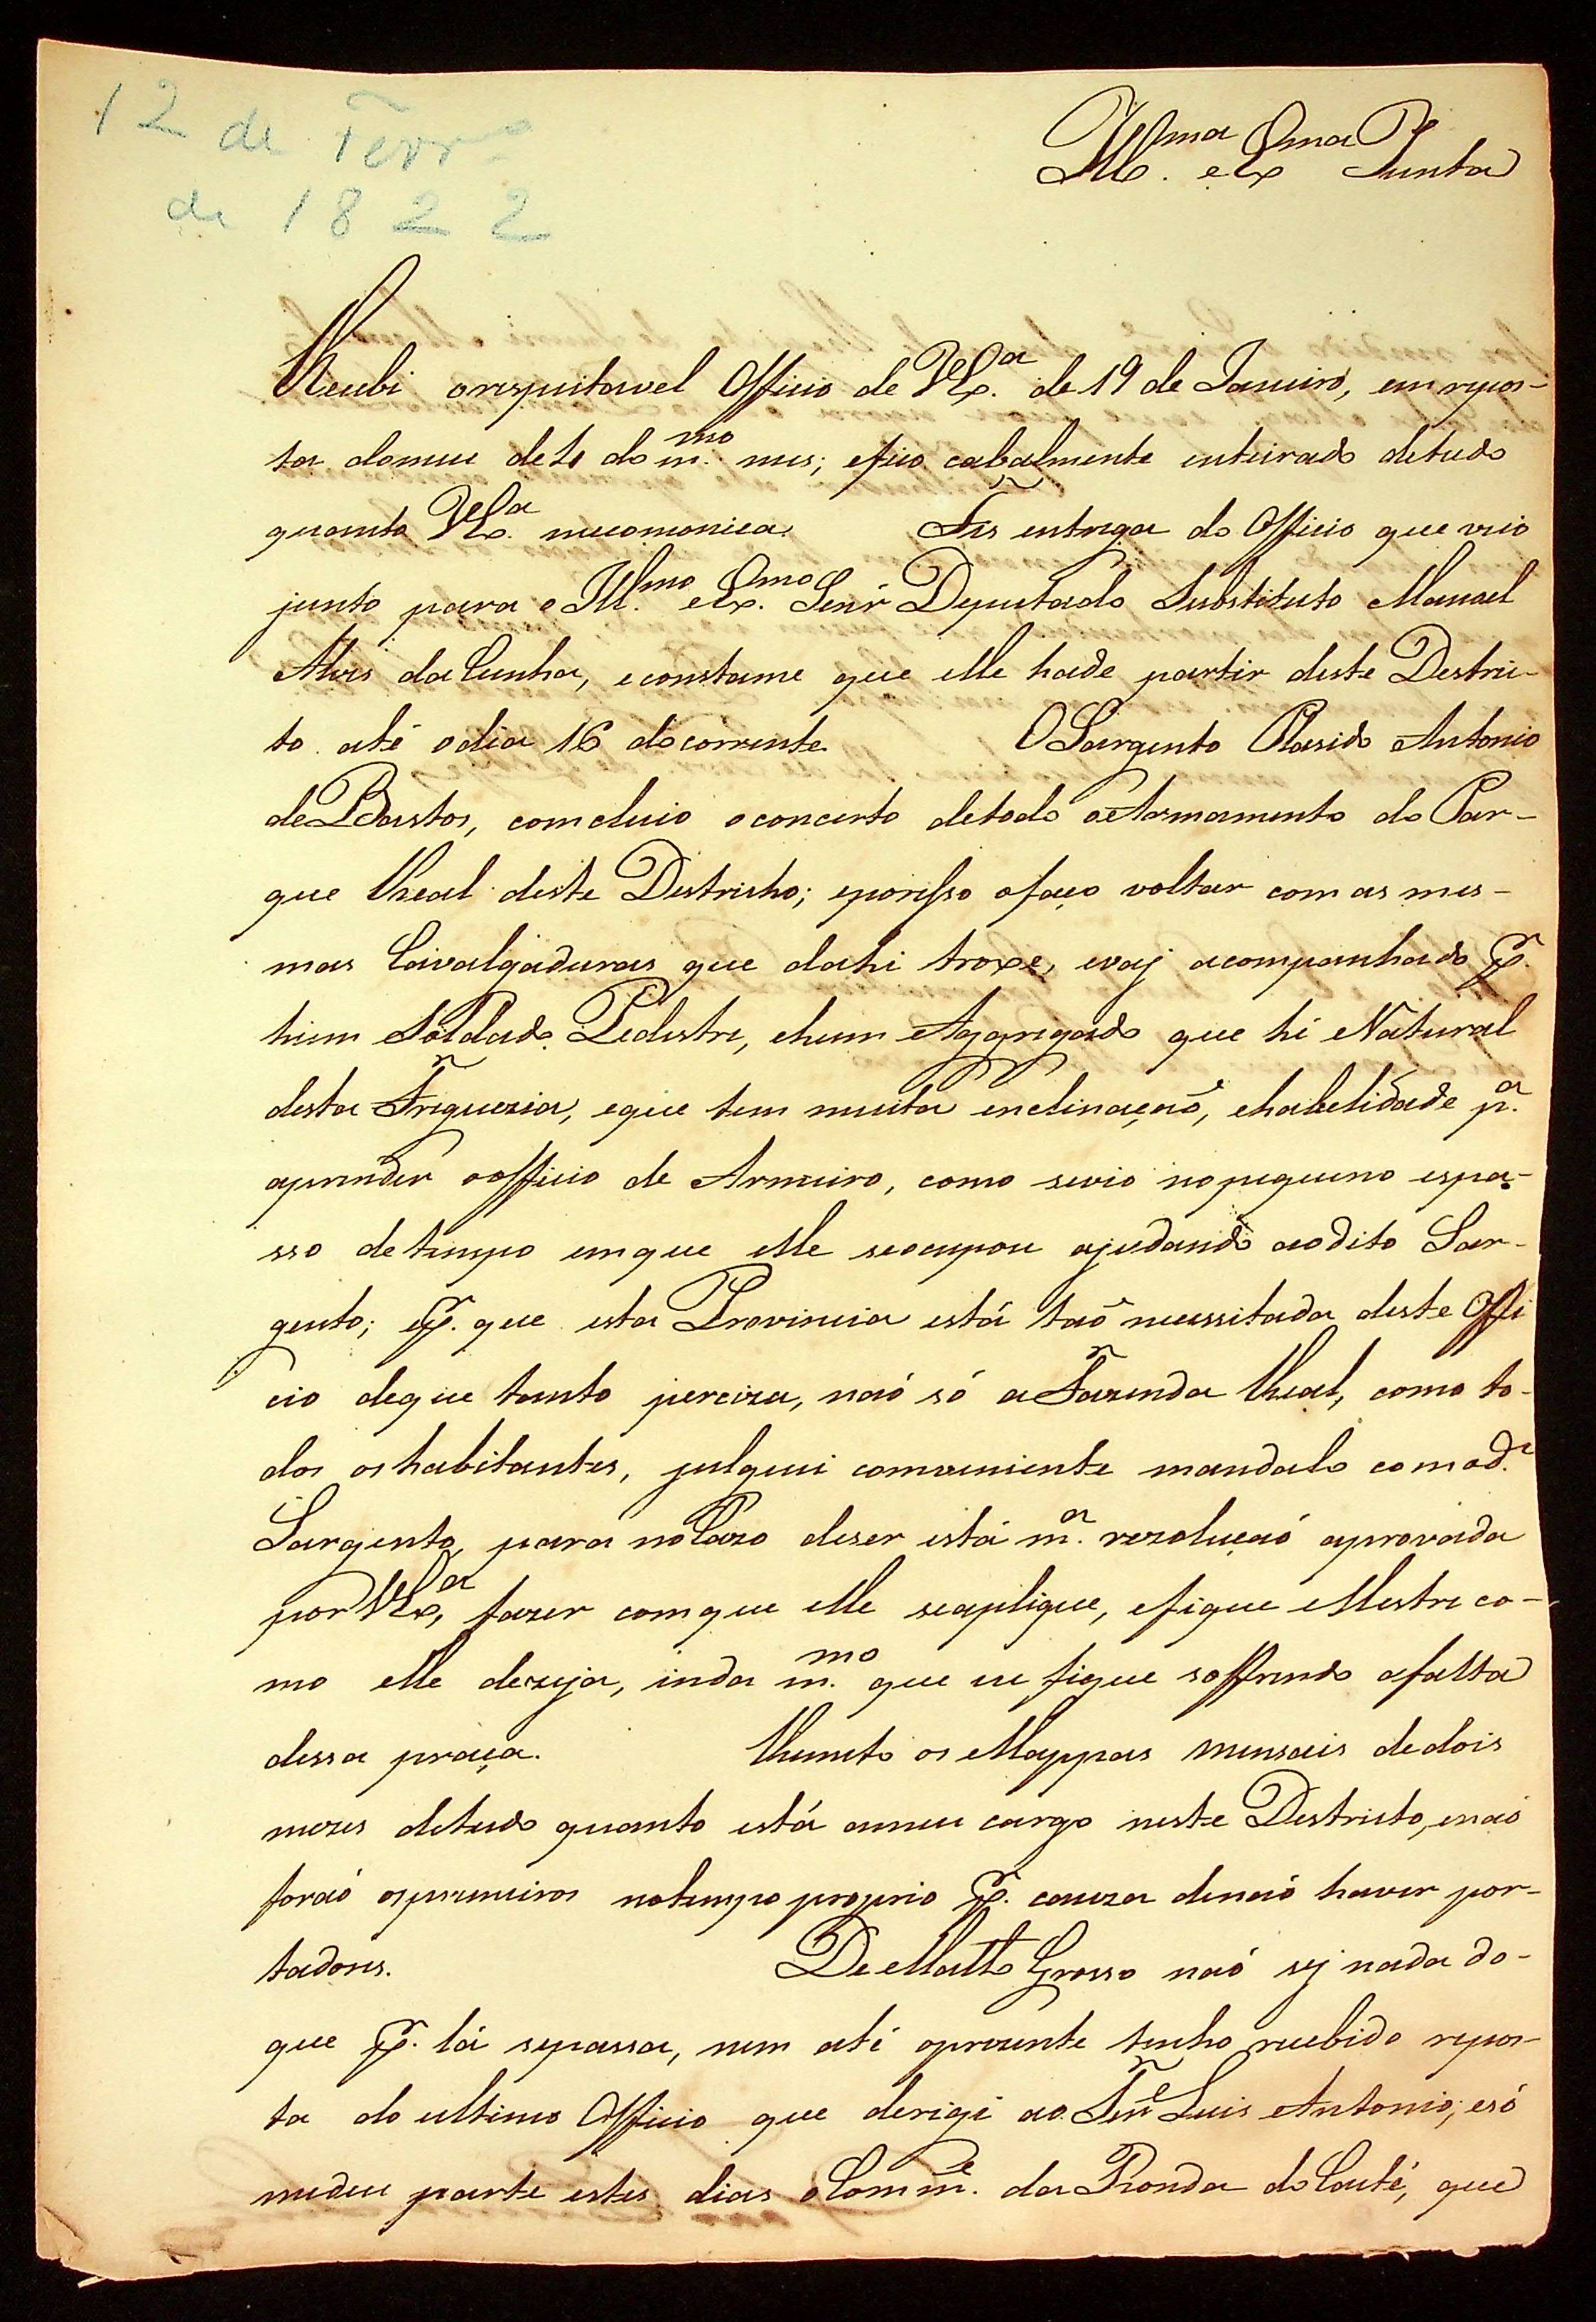 12 de Fevr.º
de 1822
Ill.ma e Ex.ma Junta
Recebi orespeitavel Officio de VEx.ª de 19 de Janeiro, em repos-
ta domeu de 4 do m.mo mes; efico cabalmente enteirado detudo
quanto VEx.ª mecomonica. Fis entrega do Officio que veio
junto para o Ill.mo eEx.mo Senr Deputado Substituto Manoel
Alves da Cunha, econstame que elle hade partir deste Destric-
to até odia 16 docorrente. O Sargento Plasido Antonio
de Bastos, comcluio oconcerto detodo oArmamento do Par-
que Real deste Destricho; eporisso ofaço voltar com as mes-
mas Cavalgaduras que dahi troxe, evaj acompanhado p.r
hum Soldado Pedestre, ehum Aggregado que hé Natural
desta Freguezia, eque tem muita enclinaçaõ, ehabelidade p.ª
aprender oofficio de Armeiro, como sevio nopequeno espa-
sso de tempo emque elle seocupou ajudando aodito Sar-
gento; ep.r que esta Provincia está taõ necessitada deste Offi
cio deque tanto perciza, naõ só aFazenda Real, como to-
dos os habitantes, julguei comveniente mandalo com od.º
Sargento, para noCazo deser está m.ª rezoluçaõ aprovada
por VEx.ª, fazer comque elle seaplique, efique Mestre co-
mo elle dezeja, inda m.mo que eu fique soffrendo afalta
dessa praça. Remeto os Mappas mensais de dois
mezes detudo quanto está ameu cargo neste Destricto, enaõ
foraõ osprimeiros notempo proprio p.r cauza denaõ haver por-
tadores. De Matto Grosso naõ sej nada do-
que p.r lá sepassa, nem até oprezente tenho recebido repos-
ta do ultimo Officio que derigi ao Ten.e Luis Antonio; esó
medeu parte estes dias oComm.e da Ronda do Caité, que